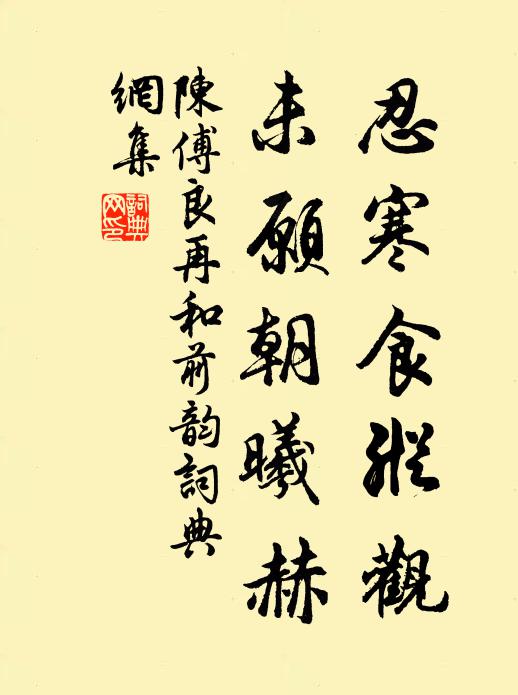 忍寒食縱觀
未願朝曦赫
陳傅良再和前韵詞典
網集
詞典網印